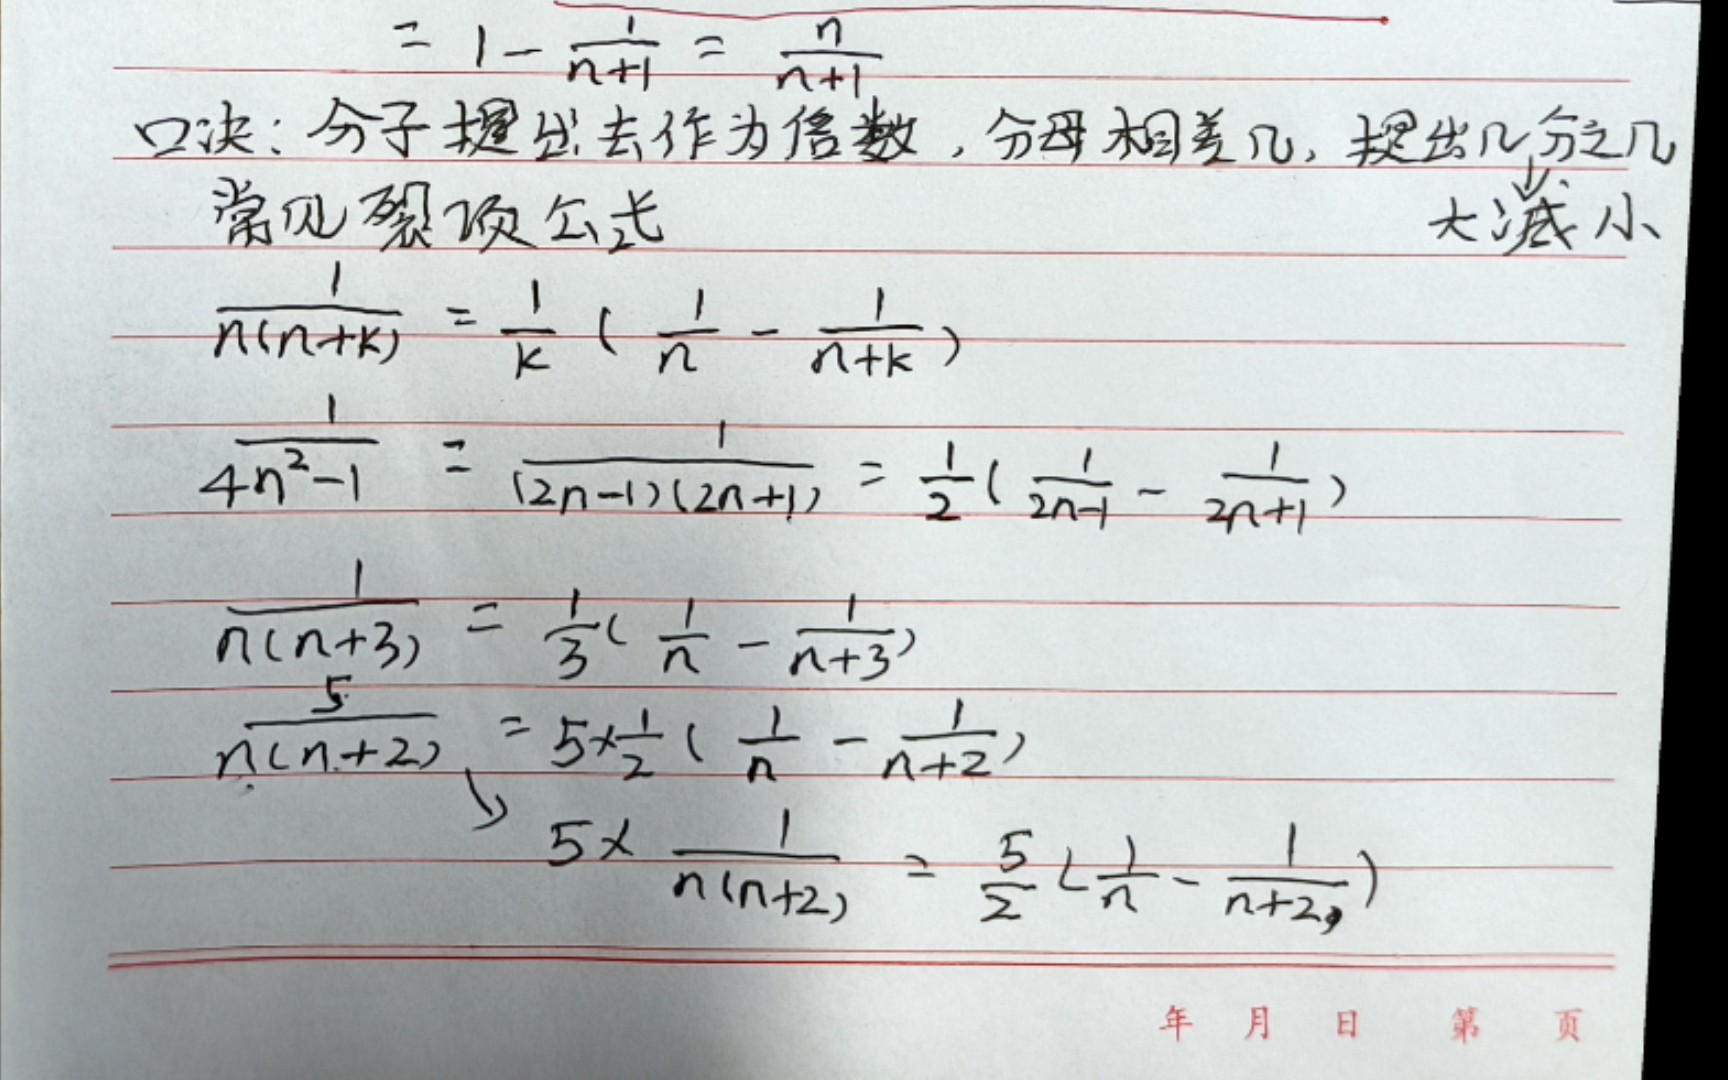 = 1 - 1/(n+1) = n/(n+1)
口决: 分子提出去作为倍数, 分母相差几, 提出几分之几
常见裂项公式 大减小
1/(n(n+k)) = 1/k ( 1/n - 1/(n+k) )
1/(4n²-1) = 1/((2n-1)(2n+1)) = 1/2 ( 1/(2n-1) - 1/(2n+1) )
1/(n(n+3)) = 1/3 ( 1/n - 1/(n+3) )
5/(n(n+2)) = 5×1/2 ( 1/n - 1/(n+2) )
5× 1/(n(n+2)) = 5/2 ( 1/n - 1/(n+2) )
年 月 日 第 页